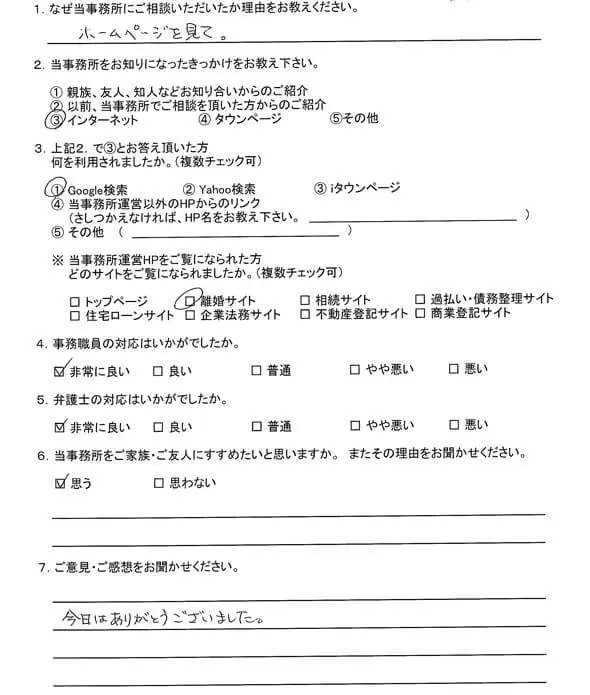 1. なぜ当事務所にご相談いただいたか理由をお教えください。
ホームページを見て。
2. 当事務所をお知りになったきっかけをお教え下さい。
① 親族、友人、知人などお知り合いからのご紹介
② 以前、当事務所でご相談を頂いた方からのご紹介
③ インターネット ④ タウンページ ⑤その他
3. 上記2. で③とお答え頂いた方
何を利用されましたか。(複数チェック可)
① Google検索 ② Yahoo検索 ③ iタウンページ
④ 当事務所運営以外のHPからのリンク
(さしつかえなければ、HP名をお教え下さい。 )
⑤ その他 ( )
※ 当事務所運営HPをご覧になられた方
どのサイトをご覧になられましたか。(複数チェック可)
□ トップページ □ 離婚サイト □ 相続サイト □ 過払い・債務整理サイト
□ 住宅ローンサイト □ 企業法務サイト □ 不動産登記サイト □ 商業登記サイト
4. 事務職員の対応はいかがでしたか。
☑ 非常に良い □ 良い □ 普通 □ やや悪い □ 悪い
5. 弁護士の対応はいかがでしたか。
☑ 非常に良い □ 良い □ 普通 □ やや悪い □ 悪い
6. 当事務所をご家族・ご友人にすすめたいと思いますか。 またその理由をお聞かせください。
☑ 思う □ 思わない
7. ご意見・ご感想をお聞かせください。
今日はありがとうございました。